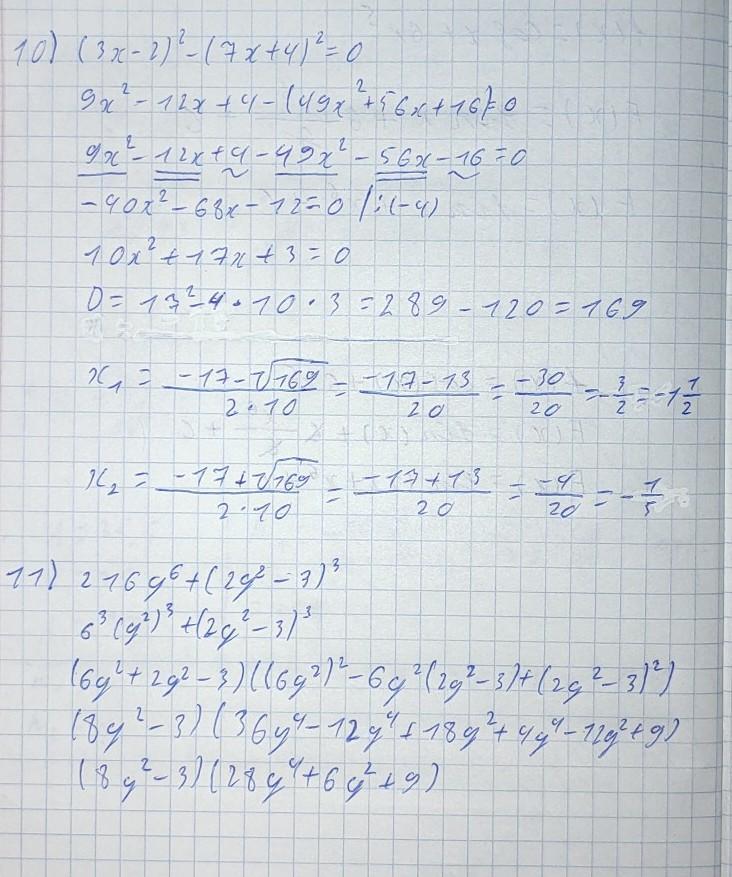 10) (3x-2)²-(7x+4)²=0
9x²-12x+4-(49x²+56x+16)=0
9x²-12x+4-49x²-56x-16=0
-40x²-68x-12=0 /:(-4)
10x²+17x+3=0
D=17²-4·10·3=289-120=169
x₁ = (-17-√169)/(2·10) = (-17-13)/20 = -30/20 = -3/2 = -1 1/2
x₂ = (-17+√169)/(2·10) = (-17+13)/20 = -4/20 = -1/5
11) 216y⁶+(2y²-3)³
6³(y²)³+(2y²-3)³
(6y²+2y²-3)((6y²)²-6y²(2y²-3)+(2y²-3)²)
(8y²-3)(36y⁴-12y⁴+18y²+4y⁴-12y²+9)
(8y²-3)(28y⁴+6y²+9)